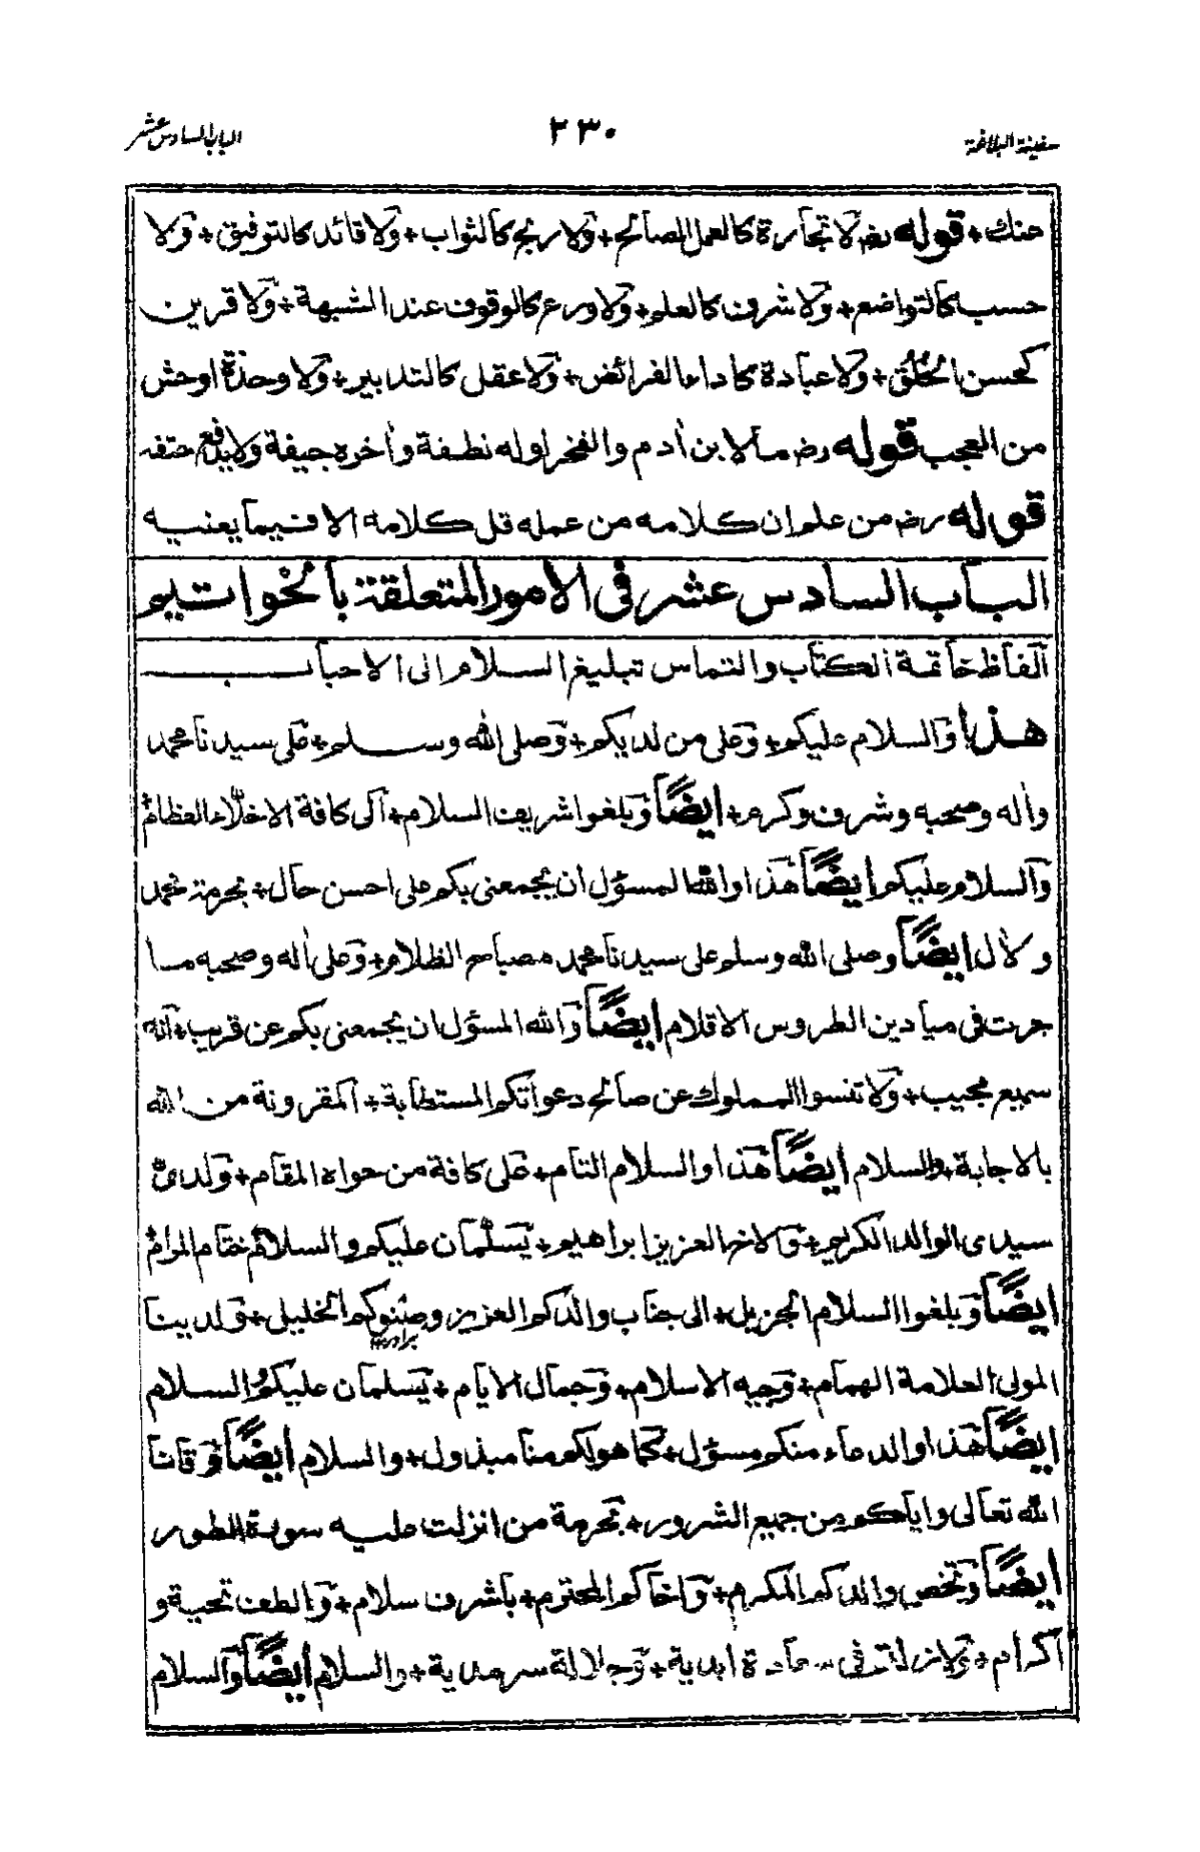 سفينة البلاغة ٢٣٠ الباب السادس عشر
عنك + قوله رضـ لا تجارة كالعمل الصالح + ولا ربح كالثواب + ولا قائد كالتوفيق + ولا
حسب كالتواضع + ولا شرف كالعلم + ولا ورع كالوقوف عند الشبهة + ولا قرين
كحسن الخُلُق + ولا عبادة كاداء الفرائض + ولا عقل كالتدابير + ولا وحدة اوحش
من العجب قوله رضـ ما لابن أدم والفخر اوله نطفة وأخره جيفة ولا يدفع حتفه
قوله رضـ من علم ان كلامه من عمله قل كلامه الا فيما يعنيه
الباب السادس عشر فى الامور المتعلقة بالخواتيم
الفاظ خاتمة الكتاب والتماس تبليغ السلام الى الاحباب
هذا والسلام عليكم + وعلى من لديكم + وصلى الله وسلم + على سيدنا محمد
وأله وصحبه وشرف وكرم + ايضًا وبلغوا شريف السلام + الى كافة الاخلّاء العظام
والسلام عليكم ايضًا هذا والله المسؤل ان يجمعنى بكم على احسن حال + بحرمة محمد
ولأل ايضًا وصلى الله وسلم على سيدنا محمد مصباح الظلام + وعلى أله وصحبه ما
جرت فى ميادين الطروس الاقلام ايضًا والله المسؤل ان يجمعنى بكم عن قريب + انه
سميع مجيب + ولا تنسوا المملوك عن صالح دعواتكم المستطابة + المقرونة من الله
بالاجابة + والسلام ايضًا هذا والسلام التام + على كافة من حواه المقام + ولدىّ
سيدى الوالد الكريم + والاخ العزيز ابراهيم + يسلّمان عليكم والسلام ختام المرام
ايضًا وبلغوا السلام الجزيل + الى جناب والدكم العزيز وصِنْوِكم الخليل + ولدينا
المولى العلامة الهمام + وجيه الاسلام + وجمال الايام + يسلمان عليكم والسلام
ايضًا هذا والدعاء منكم مسؤل + كما هو لكم منا مبذول + والسلام ايضًا وقانا
الله تعالى واياكم من جميع الشرور + بحرمة من انزلت عليه سورة الطور
ايضًا ونخص والدكم المكرم + واخاكم المحترم + باشرف سلام + والطف تحية و
اكرام + ولا زلتم فى سعادة ابدية + وجلالة سرمدية + والسلام ايضًا والسلام